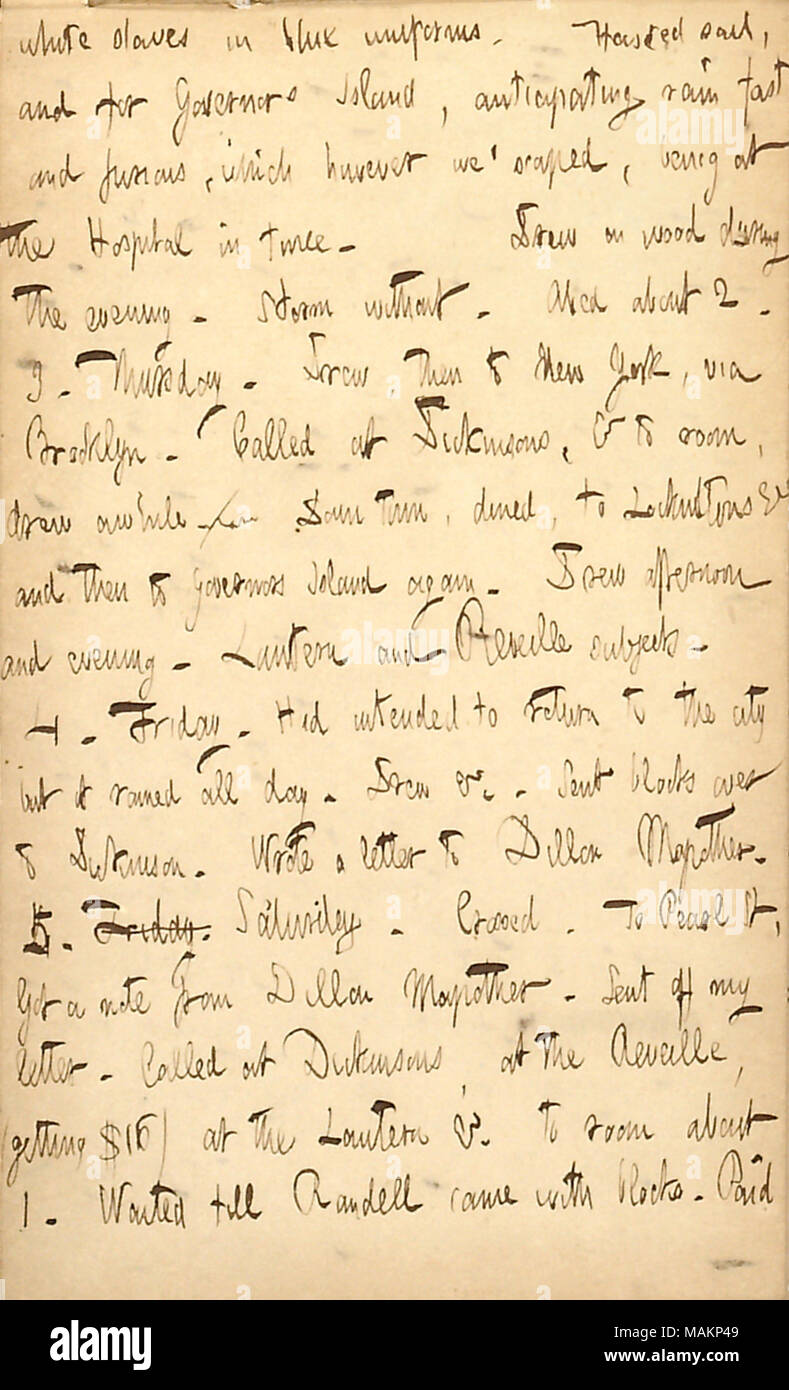 white slaves in blue uniforms. Hoisted sail,
and for Governors Island, anticipating rain fast
and furious, which however we 'scaped, being at
the Hospital in time. Drew on wood during
the evening. Storm without. Abed about 2.
3. Thursday. Drew, then to New York, via
Brooklyn. Called at Dickinsons, & to room,
drew awhile. Down town, dined, to
and then to Governors Island again. Drew afternoon
and evening. Lantern and Reveille subjects.
4. Friday. Had intended to return to the city
but it rained all day. Drew &c. Sent blocks over
to Dickinson. Wrote a letter to Dillon Mapother.
5. Friday. Saturday. Crossed. To Pearl St,
Got a note from Dillon Mapother. Sent off my
letter. Called at Dickinsons, at the Reveille,
(getting $16) at the Lantern &c. To room about
1. Waited till Randell came with blocks. Paid
alamy
Image ID: MAKP49
www.alamy.com